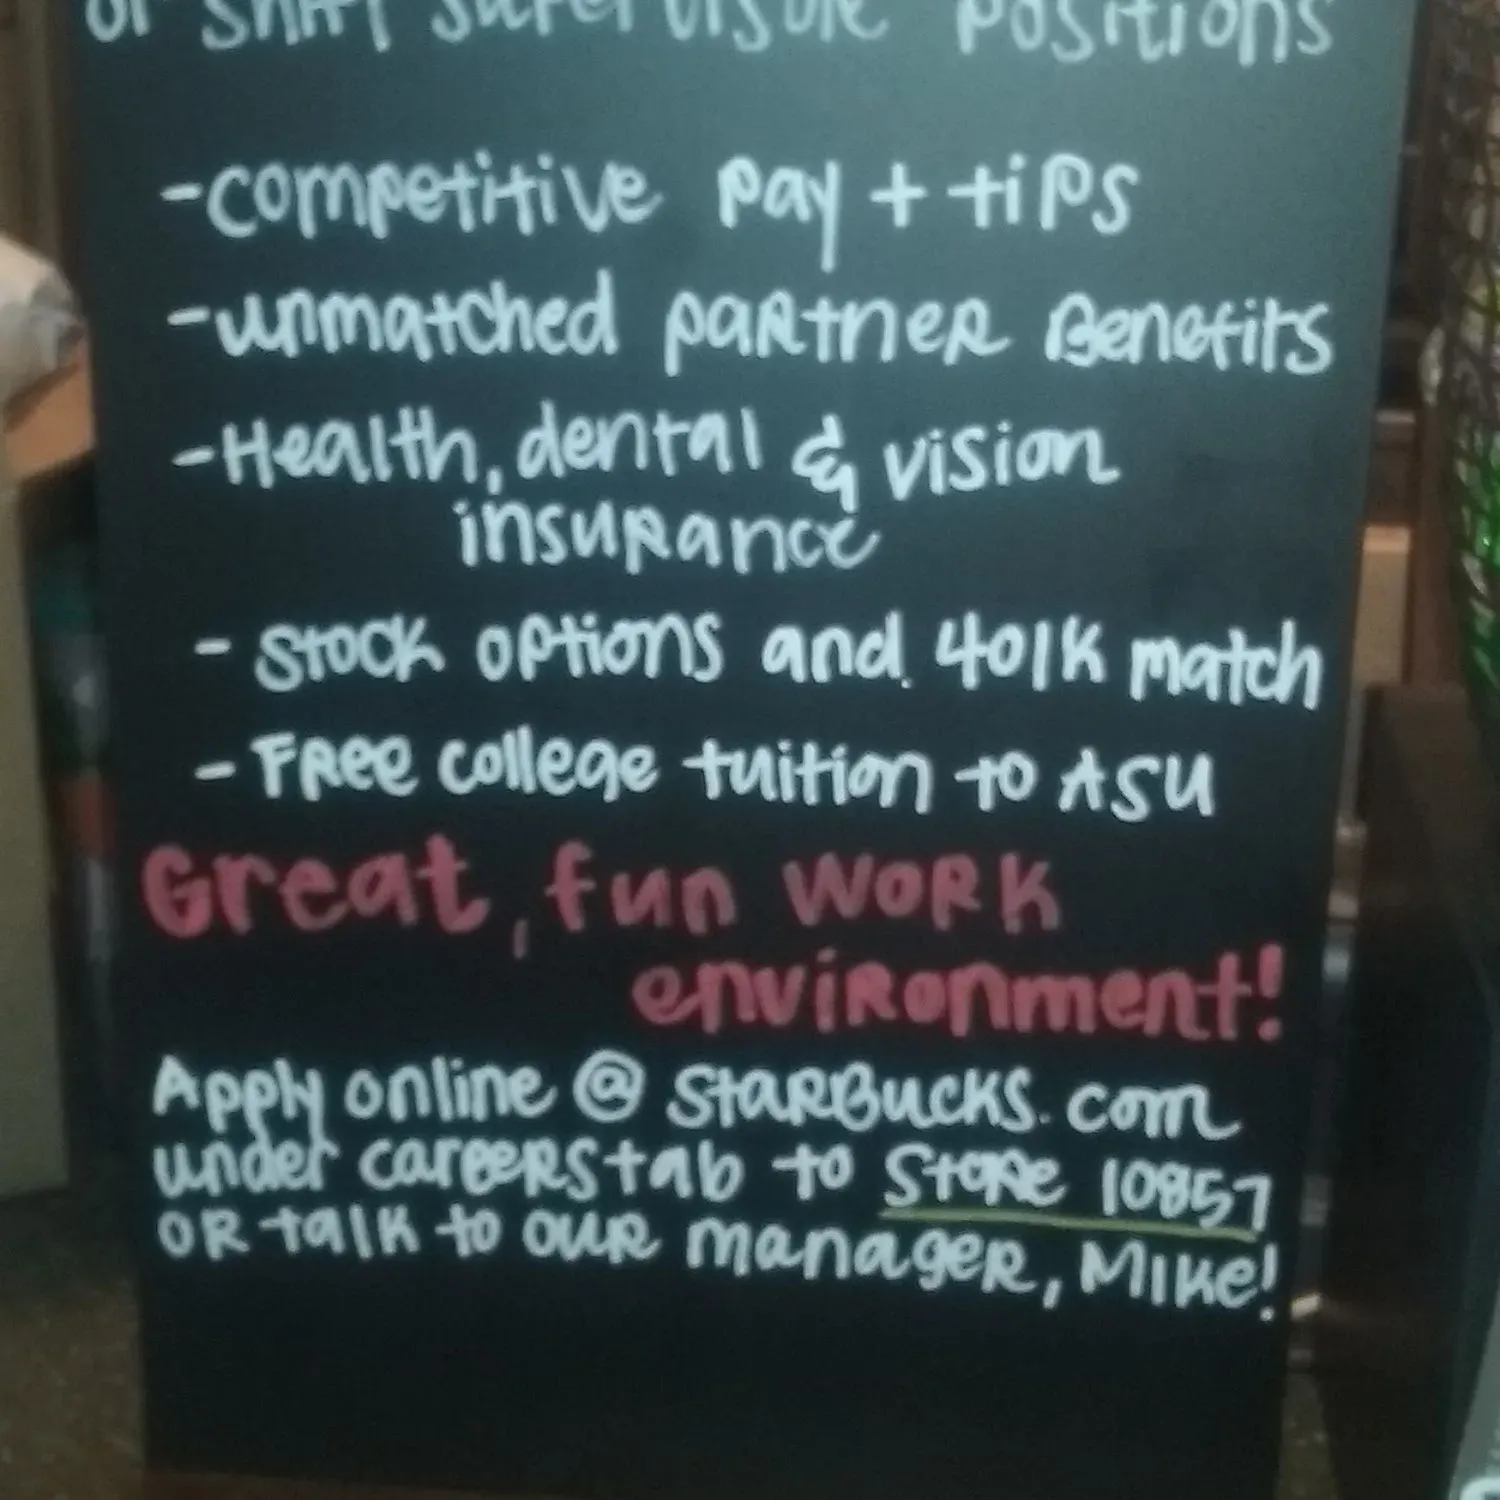 or shift supervisor positions
- competitive pay + tips
- unmatched partner Benefits
- Health, dental & vision
insurance
- Stock options and 401K match
- Free college tuition to ASU
Great, fun work
environment!
Apply online @ Starbucks.com
under careers tab to Store 10857
or talk to our manager, Mike!